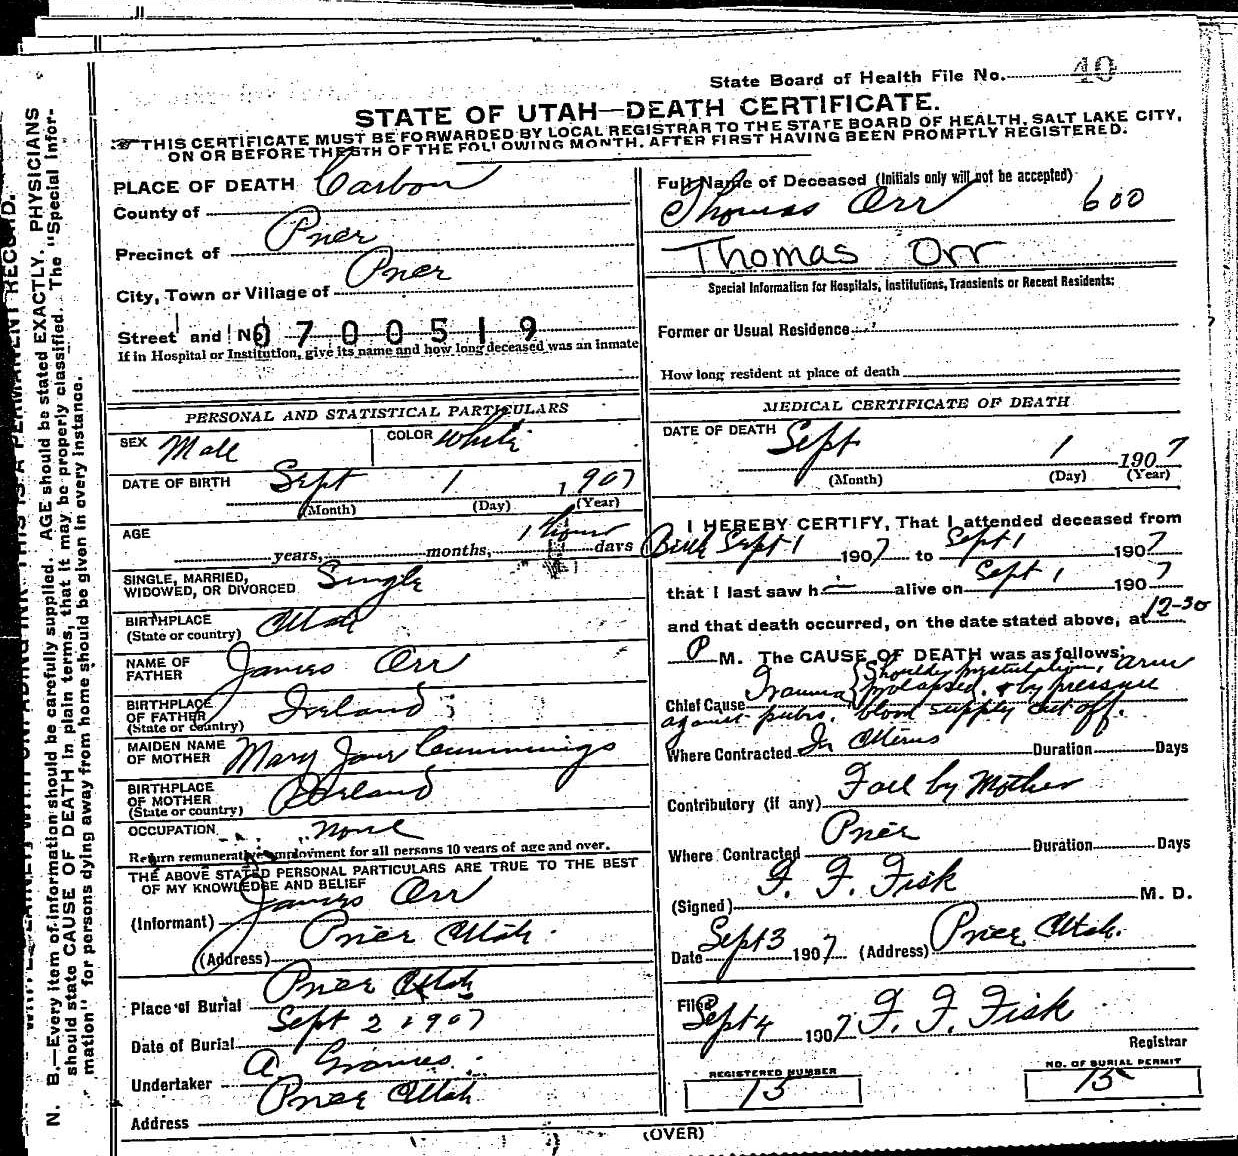 State Board of Health File No. 40
STATE OF UTAH—DEATH CERTIFICATE.
THIS CERTIFICATE MUST BE FORWARDED BY LOCAL REGISTRAR TO THE STATE BOARD OF HEALTH, SALT LAKE CITY,
ON OR BEFORE THE 5TH OF THE FOLLOWING MONTH, AFTER FIRST HAVING BEEN PROMPTLY REGISTERED.
PLACE OF DEATH Carbon
County of
Precinct of Price
City, Town or Village of Price
Street and No. 0700519
If in Hospital or Institution, give its name and how long deceased was an inmate
PERSONAL AND STATISTICAL PARTICULARS
SEX Male COLOR White
DATE OF BIRTH Sept 1 1907
(Month) (Day) (Year)
AGE 1 hour
years, months, days
SINGLE, MARRIED,
WIDOWED, OR DIVORCED Single
BIRTHPLACE
(State or country) Utah
NAME OF
FATHER James Orr
BIRTHPLACE
OF FATHER
(State or country) Ireland
MAIDEN NAME
OF MOTHER Mary Jane Cummings
BIRTHPLACE
OF MOTHER
(State or country) Ireland
OCCUPATION none
Return remunerative employment for all persons 10 years of age and over.
THE ABOVE STATED PERSONAL PARTICULARS ARE TRUE TO THE BEST
OF MY KNOWLEDGE AND BELIEF
(Informant) James Orr
(Address) Price Utah.
Place of Burial Price Utah
Date of Burial Sept 2 1907
Undertaker A
Address Price Utah
Full Name of Deceased (Initials only will not be accepted)
Thomas Orr 600
Thomas Orr
Special Information for Hospitals, Institutions, Transients or Recent Residents:
Former or Usual Residence
How long resident at place of death
MEDICAL CERTIFICATE OF DEATH
DATE OF DEATH Sept 1 1907
(Month) (Day) (Year)
I HEREBY CERTIFY, That I attended deceased from
Birth Sept 1 1907 to Sept 1 1907
that I last saw h alive on Sept 1 1907
and that death occurred, on the date stated above, at 12-30
P M. The CAUSE OF DEATH was as follows:
Shoulder presentation, arm
Chief Cause Trauma prolapsed, & by pressure
against pubis, blood supply cut off.
Where Contracted In Uterus Duration Days
Contributory (if any) Fall by Mother
Where Contracted Price Duration Days
(Signed) F. F. Fisk M. D.
Date Sept 3 1907 (Address) Price, Utah.
Filed Sept 4 1907 F. F. Fisk
Registrar
REGISTERED NUMBER
15
NO. OF BURIAL PERMIT
15
(OVER)
THIS IS A PERMANENT RECORD.
N. B.—Every item of information should be carefully supplied. AGE should be stated EXACTLY. PHYSICIANS
should state CAUSE OF DEATH in plain terms, that it may be properly classified. The "Special Infor-
mation" for persons dying away from home should be given in every instance.